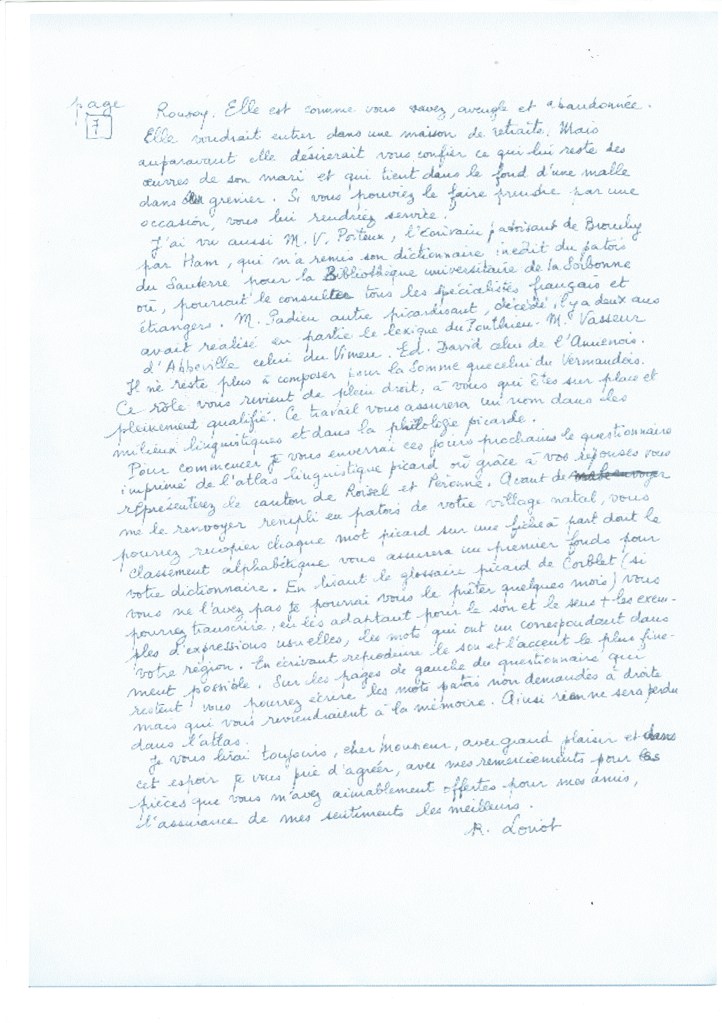 page
7
Rouvoy. Elle est comme vous savez, aveugle et abandonnée.
Elle voudrait entrer dans une maison de retraite. Mais
auparavant elle désirerait vous confier ce qui lui reste des
œuvres de son mari et qui tient dans le fond d'une malle
dans grenier. Si vous pouviez le faire prendre par une
occasion, vous lui rendriez service.
J'ai vu aussi M. V. Poiteux, l'écrivain patoisant de Brouchy
par Ham, qui m'a remis son dictionnaire inédit du patois
du Santerre pour la Bibliothèque universitaire de la Sorbonne
où, pourront le consulter tous les spécialistes français et
étrangers. M. Padieu autre picardisant, décédé il y a deux ans
avait réalisé en partie le lexique du Ponthieu. M. Vasseur
d'Abbeville celui du Vimeu. Ed. David celui de l'Amiénois.
Il ne reste plus à composer pour la Somme que celui du Vermandois.
Ce rôle vous revient de plein droit, à vous qui êtes sur place et
pleinement qualifié. Ce travail vous assurera un nom dans les
milieux linguistiques et dans la philologie picarde.
Pour commencer je vous enverrai ces jours prochains le questionnaire
imprimé de l'atlas linguistique picard où grâce à vos réponses vous
représenterez le canton de Roisel et Péronne. Avant de
me le renvoyer rempli en patois de votre village natal, vous
pourrez recopier chaque mot picard sur une fiche à part dont le
classement alphabétique vous assurera un premier fonds pour
votre dictionnaire. En lisant le glossaire picard de Corblet (si
vous ne l'avez pas je pourrai vous le prêter quelques mois) vous
pourrez transcrire, en les adaptant pour le son et le sens + les exem-
ples d'expressions usuelles, les mots qui ont un correspondant dans
votre région. En écrivant reproduire le son et l'accent le plus fine-
ment possible. Sur les pages de gauche du questionnaire qui
restent vous pourrez écrire les mots patois non demandés à droite
mais qui vous reviendraient à la mémoire. Ainsi rien ne sera perdu
dans l'atlas.
Je vous lirai toujours, cher Monsieur, avec grand plaisir et dans
cet espoir je vous prie d'agréer, avec mes remerciements pour les
pièces que vous m'avez aimablement offertes pour mes amis,
l'assurance de mes sentiments les meilleurs.
R. Loriot